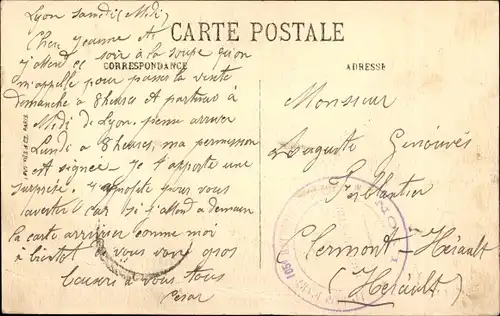 Lyon samdi (Midi)
CARTE POSTALE
CORRESPONDANCE
ADRESSE
Cher Jeanne et
J'attend ce soir à la soupe qu'on
m'appelle pour passer la visite
dimanche a 8 heures et partirai à
Midi de Lyon. pense arriver
Lundi a 8 heures, ma permission
est signée. Je t'apporte une
surprise. J'
pour vous
avertir car si j'attend a demain
la carte arrivera comme moi
a bientot vous voir gros
baisers a vous tous
Cesar
Monsieur
Auguste Genouvés
Ferblantier
Clermont-Hérault
(Hérault)